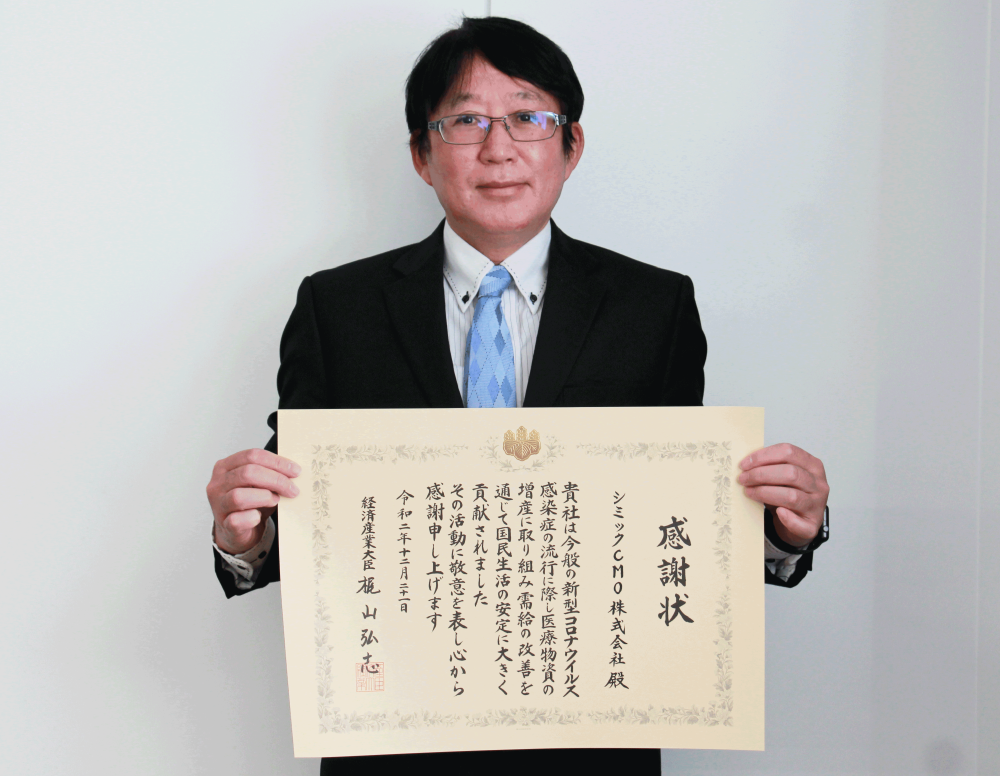 感謝状
シミックCMO株式会社殿
貴社は今般の新型コロナウイルス
感染症の流行に際し医療物資の
増産に取り組み需給の改善を
通じて国民生活の安定に大きく
貢献されました
その活動に敬意を表し心から
感謝申し上げます
令和二年十二月二十一日
経済産業大臣 梶山弘志